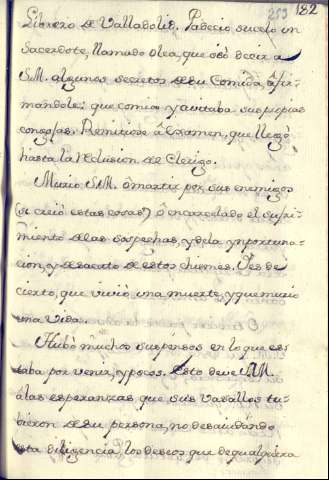 253 182
Librero de Valladolid. Padecio sucelo un
Sacerdote, llamado Olea, que osò decir a
S.M. algunos secretos de su Comida, afir-
mandole: que comia y avitaba sus propias
congojas. Remitiose à Examen, que llegò
hasta la reclusion de Clerigo.
Murio S.M. ò martir por sus enemigos
(si creiò estas cosas) ò encarcelado el sufri-
miento de las sospechas, y de la ymportuna-
cion, y desacato de estos chismes. Yes de
cierto, que viviò una muerte, y que murio
una vida.
Hubò muchos suspensos en lo que es-
taba por venir, y pocos. Esto deve V.M.
à las esperanzas que sus vasallos tu-
bieron de su persona, no descuidando
esta diligencia los deseos que de qualquiera